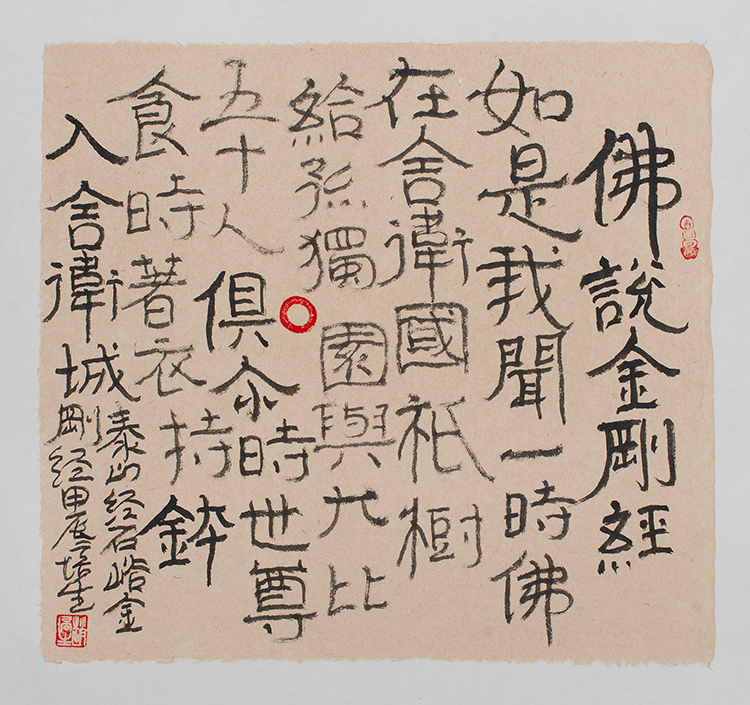 佛說金剛經
如是我聞一時佛
在舍衛國祇樹
給孤獨園與大比
五十人俱尒時世尊
食時著衣持鉢
入舍衛城
泰山经石峪金
剛经甲辰培生